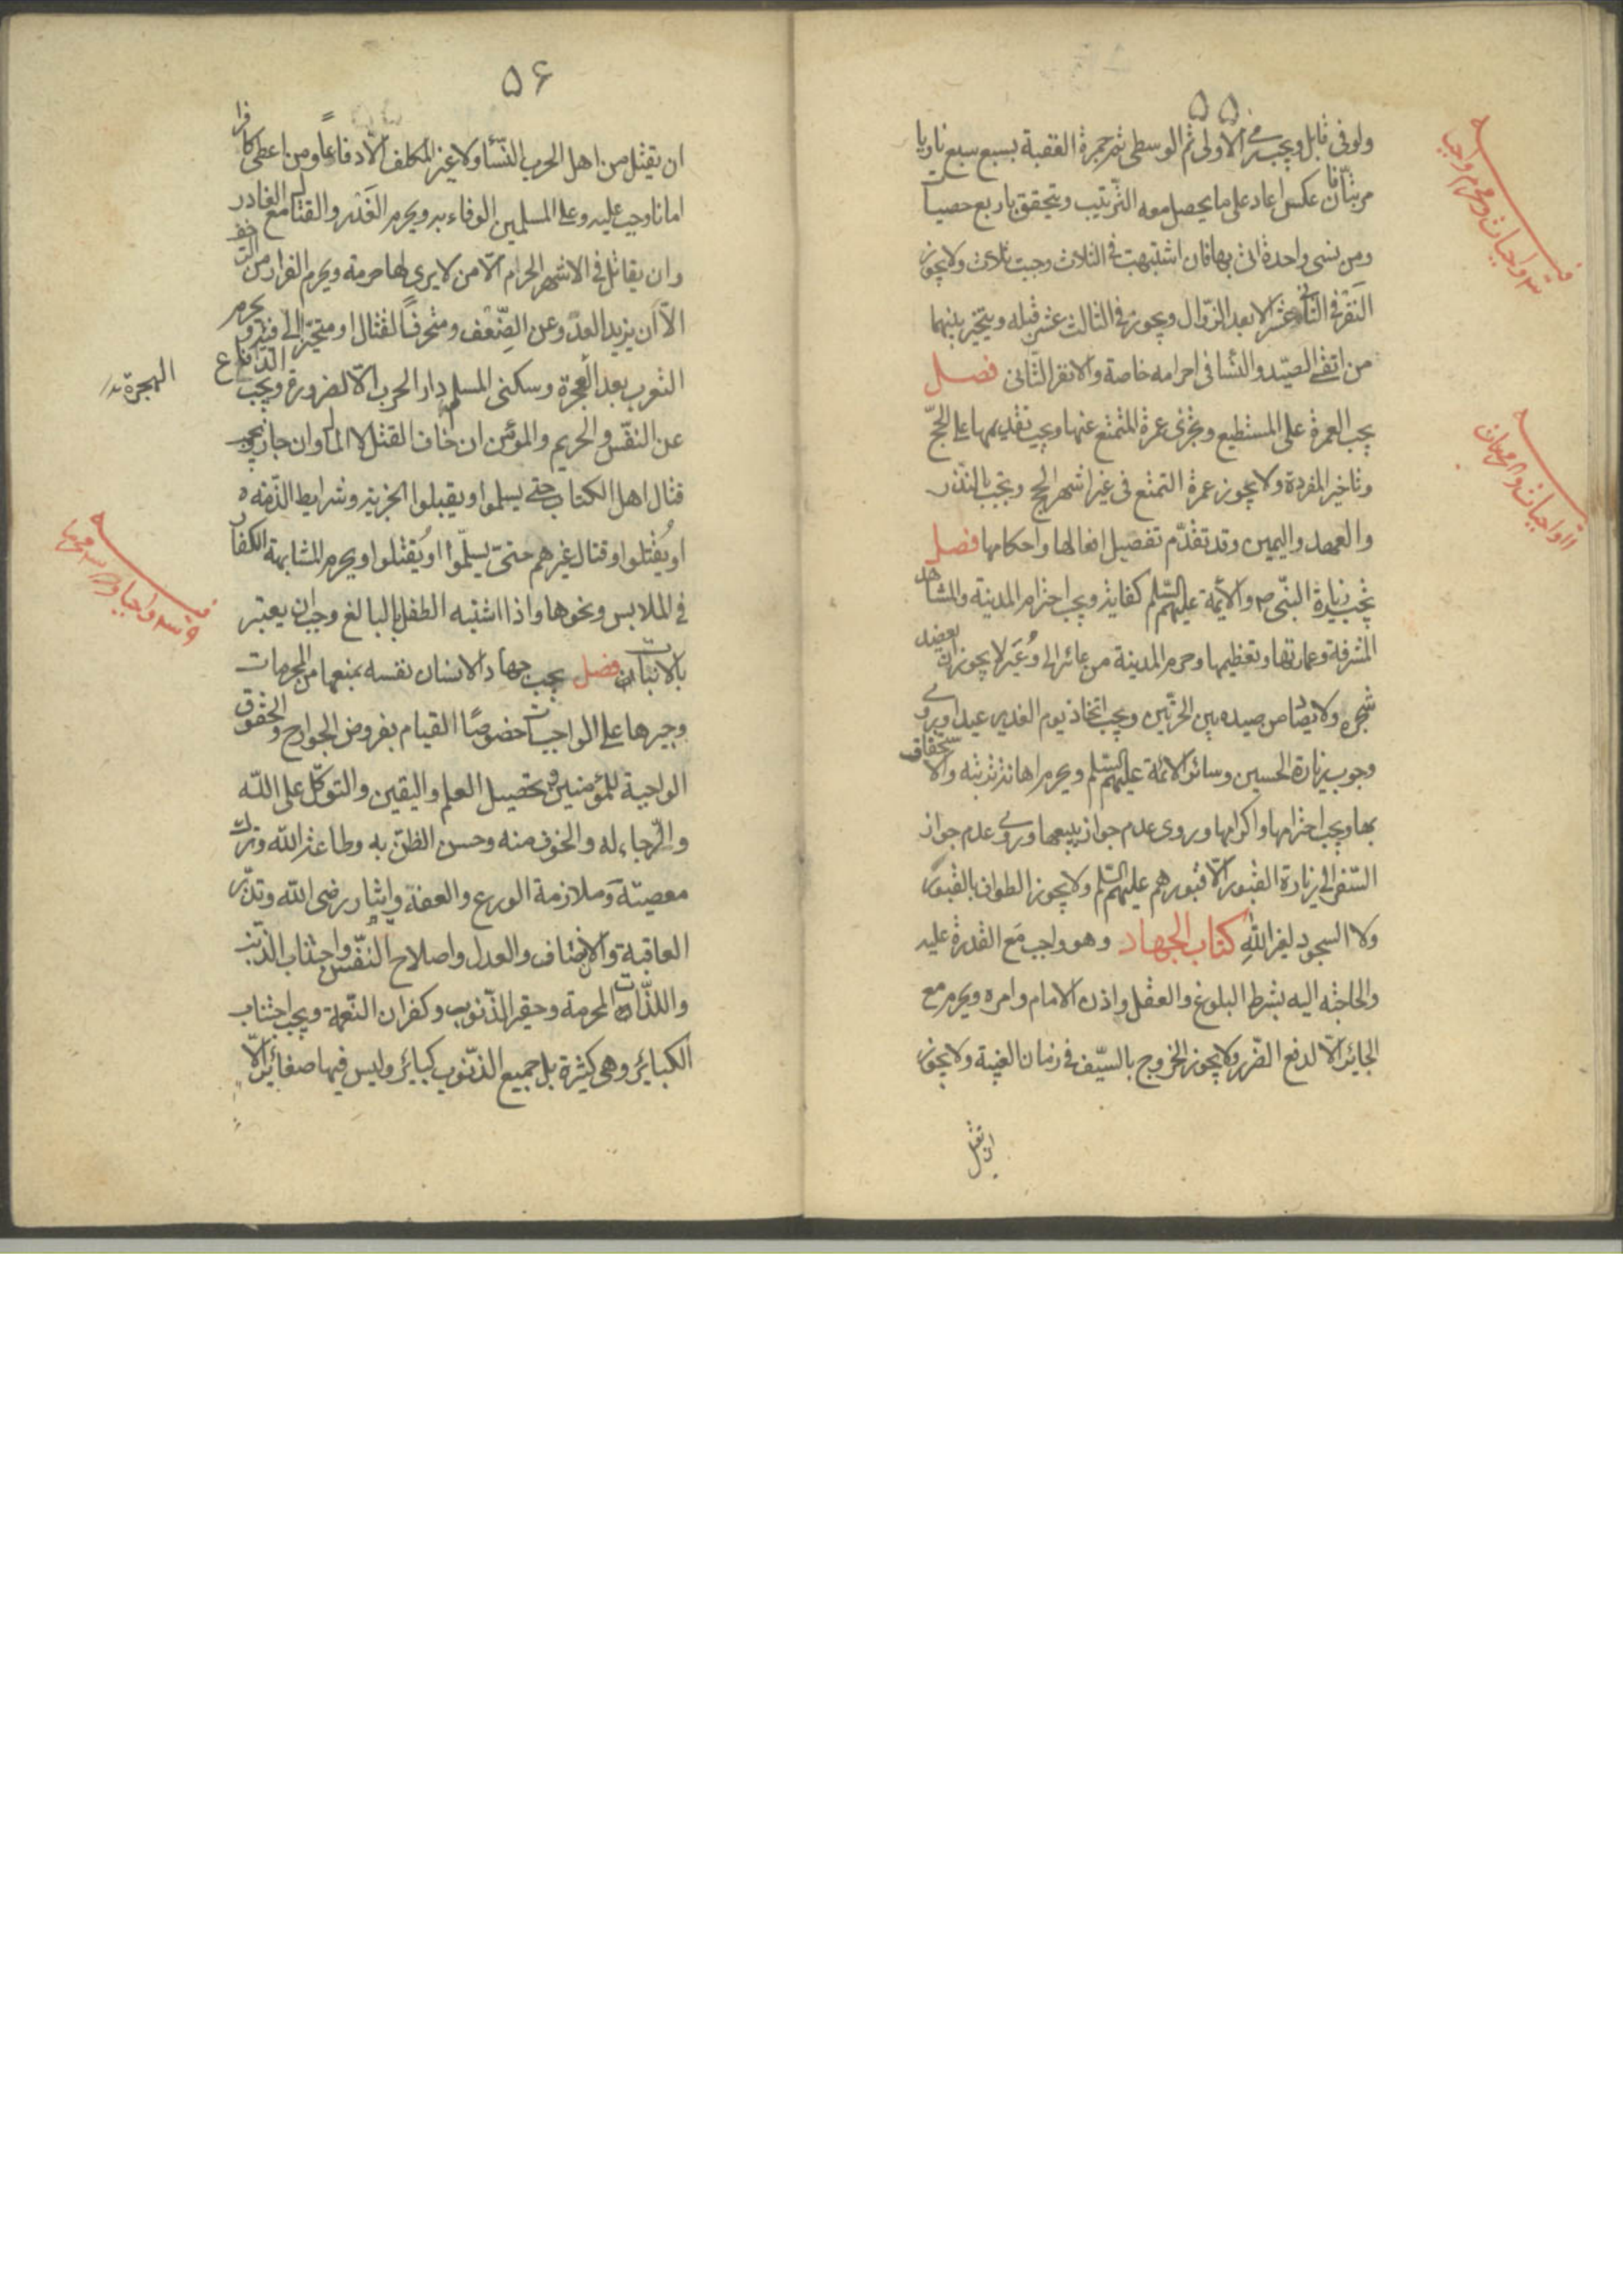 ۵۵
ولو فی قابل ویجب رمی الاولی ثم الوسطی ثم جمرة العقبة بسبع سبع ناویا
مرتبا فان عکس اعاد علی ما یحصل معه الترتیب ویتحقق باربع حصیات
ومن نسی واحدة اتی بها فان اشتبهت فی الثلاث وجبت ثلاث ولا یجوز
النفر فی الثانی عشر الا بعد الزوال ویجوز فی الثالث عشر قبله ویتخیر بینهما
من اتقی الصید والنسا فی احرامه خاصة والا نفر الثانی فصل
یجب العمرة علی المستطیع وتجزی عمرة المتمتع عنها ویجب تقدیمها علی الحج
وتاخیر المفردة ولا یجوز عمرة التمتع فی غیر اشهر الحج وتجب بالنذر
والعهد والیمین وقد تقدم تفصیل افعالها واحکامها فصل
تجب زیارة النبی ص والائمة علیهم السلم کفایة ویجب احترام المدینة والمشاهد
المشرفة وعمارتها وتعظیمها وحرم المدینة من عائر الی وعیر لا یجوز ان یعضد
شجره ولا یصاد من صیده بین الحرتین ویجب اتخاذ یوم الغدیر عیدا ویروی
وجوب زیارة الحسین وسائر الائمة علیهم السلم ویحرم اهانة تربته والاستخفاف
بها ویجب احترامها واکرامها وروی عدم جواز بیعها وروی عدم جواز
السفر الی زیارة القبور الا قبورهم علیهم السلم ولا یجوز الطواف بالقبور
ولا السجود لغیر الله کتاب الجهاد وهو واجب مع القدرة علیه
والحاجة الیه بشرط البلوغ والعقل واذن الامام وامره ویحرم مع
الجایر الا لدفع الضرر ولا یجوز الخروج بالسیف فی زمان الغیبة ولا یجوز
ان یقتل
۵۶
ان یقتل من اهل الحرب النسا ولا غیر المکلف الا دفاعا ومن اعطی کافرا
امانا وجب علیه وعلی المسلمین الوفاء به ویحرم الغدر والقتال مع الغادر
وان یقاتل فی الاشهر الحرام الا من لا یری لها حرمة ویحرم الفرار من الزحف
الا ان یزید العدو عن الضعف ومتحرفا لقتال او متحیزا الی فئة ویحرم
التعرب بعد الهجرة وسکنی المسلم دار الحرب الا لضرورة ویجب الدفاع
الهجرة
عن النفس والحریم والمؤمن ان خاف القتل لا المال وان جاز ویجب
قتال اهل الکتاب حتی یسلموا او یقبلوا الجزیة وشرایط الذمة
او یقتلوا وقتال غیرهم حتی یسلموا او یقتلوا ویحرم المشابهة الکفار
فی الملابس ونحوها واذا اشتبه الطفل بالبالغ وجب ان یعتبر
بالانبات فصل یجب جهاد الانسان نفسه بمنعها من المحرمات
وجبرها علی الواجبات خصوصا القیام بفروض الجوارح والحقوق
الواجبة للمؤمنین وتحصیل العلم والیقین والتوکل علی الله
والرجاء له والخوف منه وحسن الظن به وطاعة الله وترک
معصیته وملازمة الورع والعفة وایثار رضی الله وتدبر
العاقبة والانصاف والعدل واصلاح النفس واجتناب الذنب
واللذات المحرمة وحقیر الذنوب وکفران النعمة ویجب اجتناب
الکبائر وهی کثیرة بل جمیع الذنوب کبائر ولیس فیها صغائر الا